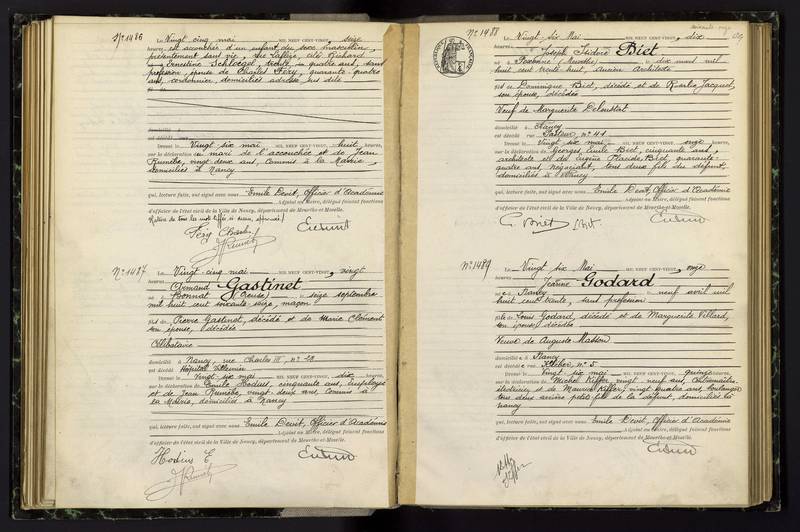 N° 1486
Le Vingt cinq mai MIL NEUF CENT-VINGT, seize
heures est accouchée d'un enfant du sexe masculin,
présentement sans vie, rue
Ernestine trente quatre ans, sans
profession, épouse de Charles Féry, quarante quatre
ans, cordonnier, domiciliés
domicilié à
est décédé
Dressé le Vingt six mai MIL NEUF CENT-VINGT, huit heures,
sur la déclaration du mari de l'accouchée et de Jean
vingt deux ans, Commis à la Mairie,
domiciliés à Nancy
qui, lecture faite, ont signé avec nous Emile Devit, Officier d'Académie
Adjoint au Maire, délégué faisant fonctions
d'officier de l'état civil de la Ville de Nancy, département de Meurthe-et-Moselle.
Féry Charles
N° 1487
Le Vingt cinq mai MIL NEUF CENT-VINGT, vingt
heures Armand Gastinet
né à Bonnat (Creuse) le seize septembre
mil huit cent soixante seize, maçon
fils de Pierre Gastinet, décédé et de Marie Clément
son épouse, décédée
Célibataire
domicilié à Nancy, rue Charles III, n° 28
est décédé Hôpital Villemin
Dressé le Vingt six mai MIL NEUF CENT-VINGT, dix heures,
sur la déclaration de Emile Hodius, cinquante ans, employé
et de Jean vingt deux ans, Commis à
la Mairie, domiciliés à Nancy
qui, lecture faite, ont signé avec nous Emile Devit, Officier d'Académie
Adjoint au Maire, délégué faisant fonctions
d'officier de l'état civil de la Ville de Nancy, département de Meurthe-et-Moselle.
Hodius E
N° 1488
Le Vingt six Mai MIL NEUF CENT-VINGT, dix
heures Joseph Isidore Biet
né à (Meurthe) le dix mars mil
huit cent trente huit, ancien Architecte
fils de Dominique Biet, décédé et de Jacquot,
son épouse, décédée
Veuf de Marguerite
domicilié à Nancy
est décédé rue Pasteur, n° 41
Dressé le Vingt six mai MIL NEUF CENT-VINGT, onze heures,
sur la déclaration de Georges Emile Biet, cinquante ans,
architecte et de Eugène Biet, quarante
quatre ans, négociant, tous deux fils du défunt,
domiciliés à Nancy
qui, lecture faite, ont signé avec nous Emile Devit, Officier d'Académie
Adjoint au Maire, délégué faisant fonctions
d'officier de l'état civil de la Ville de Nancy, département de Meurthe-et-Moselle.
G. Biet Biet
N° 1489
Le Vingt six Mai MIL NEUF CENT-VINGT, onze
heures Jeanne Godard
née à Nancy le neuf avril mil
huit cent trente, sans profession
fille de Louis Godard, décédé et de Marguerite Villard,
son épouse, décédée
Veuve de Auguste Masson
domiciliée à Nancy
est décédée rue Kléber, n° 5
Dressé le Vingt six mai MIL NEUF CENT-VINGT, quinze heures,
sur la déclaration de Michel Kiffer vingt neuf ans,
et de Maurice Kiffer, vingt quatre ans, boulanger
tous deux arrière petits fils de la défunte, domiciliés à
Nancy
qui, lecture faite, ont signé avec nous Emile Devit, Officier d'Académie
Adjoint au Maire, délégué faisant fonctions
d'officier de l'état civil de la Ville de Nancy, département de Meurthe-et-Moselle.
Kiffer